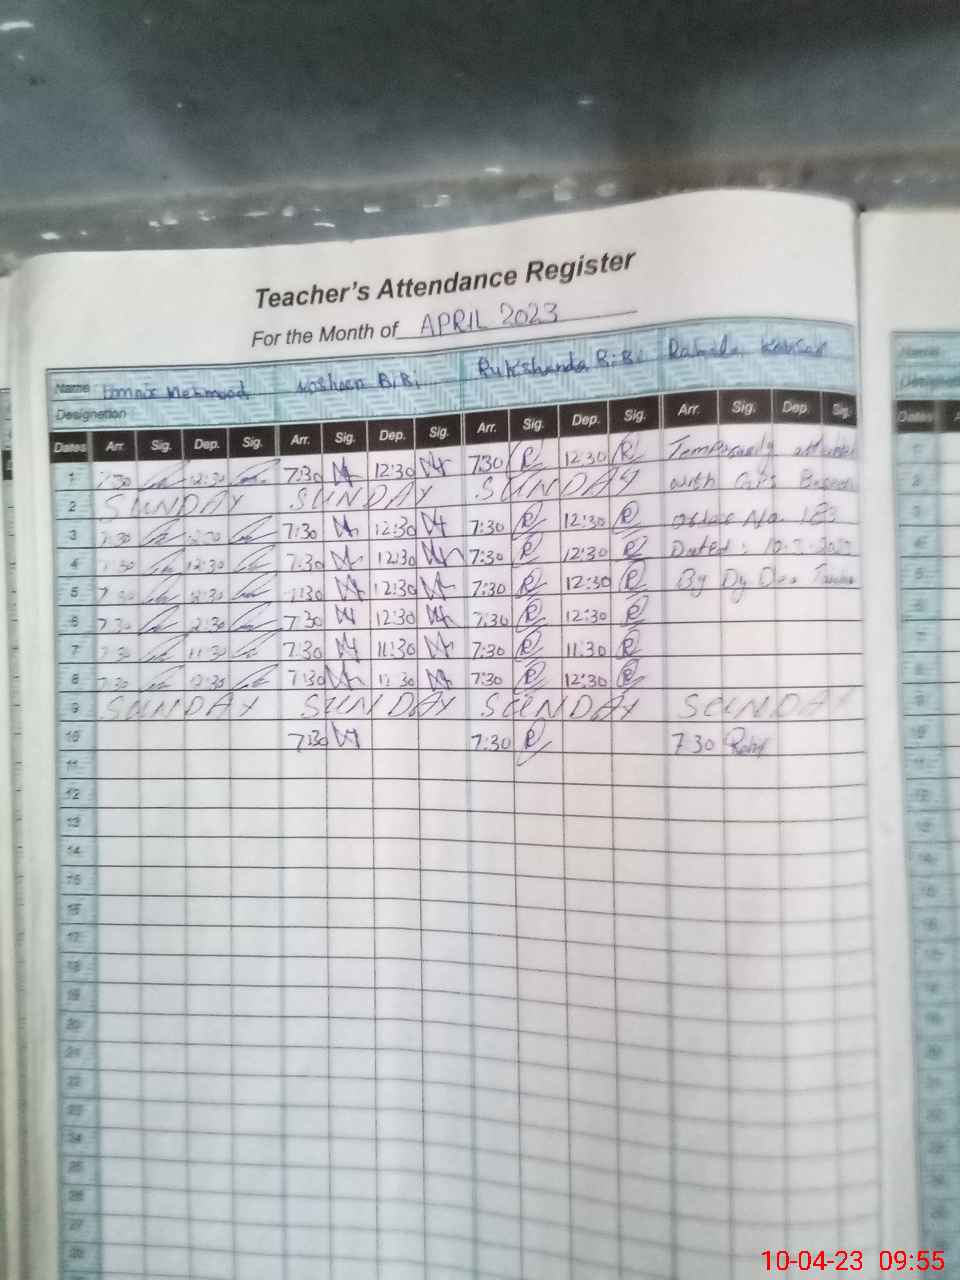 Teacher's Attendance Register
For the Month of APRIL 2023
Name Umair Mehmood Nosheen BiBi Rukshanda BiBi Rahila Kausar
Designation
Dates Arr. Sig. Dep. Sig. Arr. Sig. Dep. Sig. Arr. Sig. Dep. Sig. Arr. Sig. Dep. Sig.
1 7:30 12:30 7:30 12:30 7:30 12:30 Temporarily
2 SUNDAY SUNDAY SUNDAY with
3 7:30 12:30 7:30 12:30 7:30 12:30 No. 183
4 7:30 12:30 7:30 12:30 7:30 12:30 Dated:
5 7:30 12:30 7:30 12:30 7:30 12:30 By Dy
6 7:30 12:30 7:30 12:30 7:30 12:30
7 7:30 11:30 7:30 11:30 7:30 11:30
8 7:30 12:30 7:30 12:30 7:30 12:30
9 SUNDAY SUNDAY SUNDAY SUNDAY
10 7:30 7:30 7:30
11
12
13
14
15
16
17
18
19
20
21
22
23
24
25
26
27
28
10-04-23 09:55